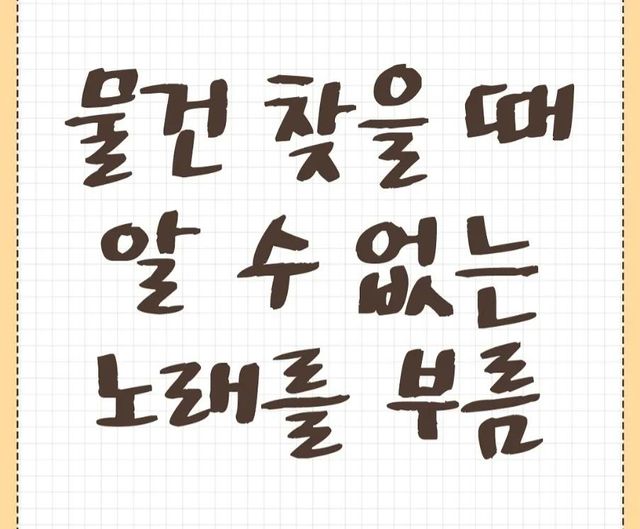 물건 찾을 때
알 수 없는
노래를 부름